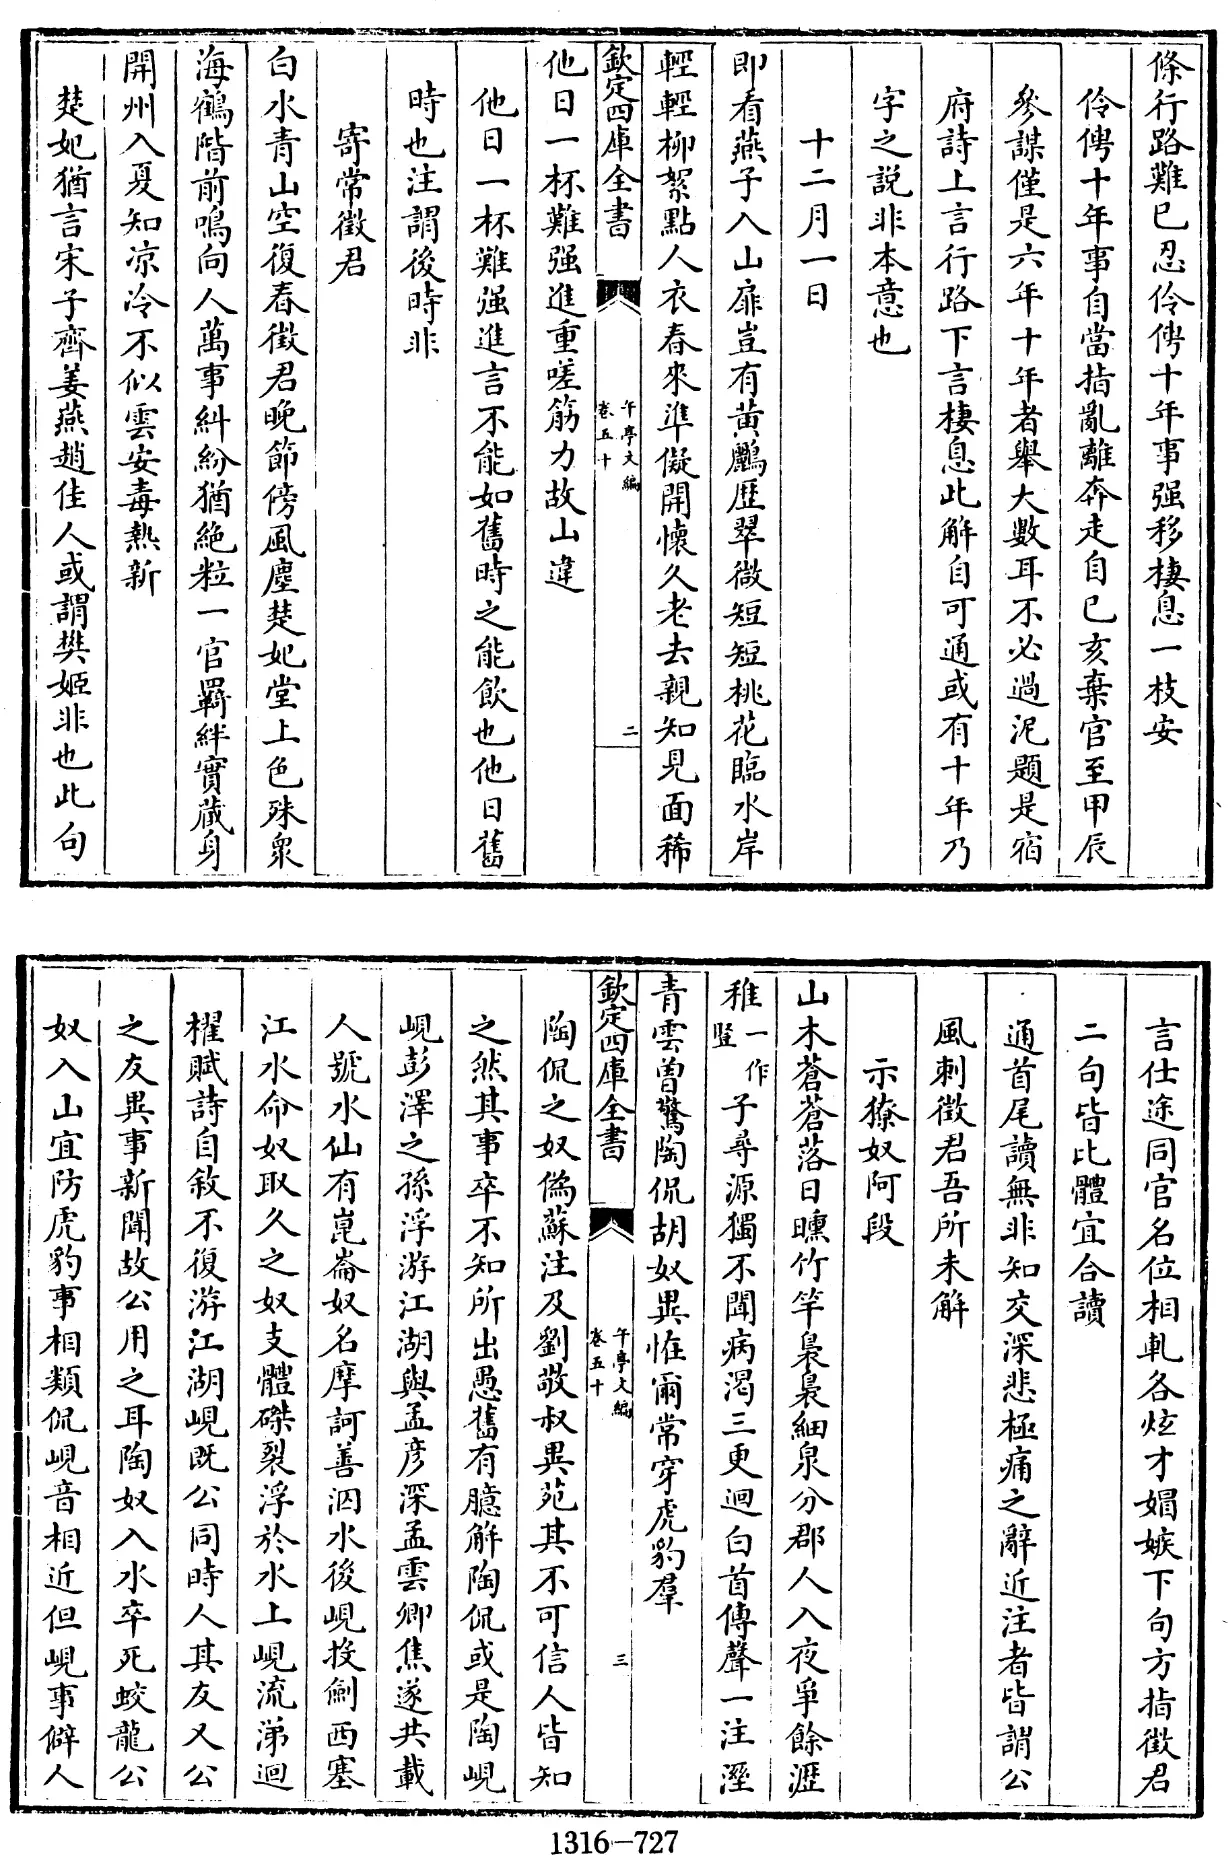 條行路難已忍伶俜十年事强移棲息一枝安
伶俜十年事自當指亂離奔走自己亥棄官至甲辰
參謀僅是六年十年者舉大數耳不必過泥題是宿
府詩上言行路下言棲息此解自可通或有十年乃
字之說非本意也
十二月一日
即看燕子入山扉豈有黃鸝歷翠微短短桃花臨水岸
輕輕柳絮點人衣春來準儗開懷久老去親知見面稀
欽定四庫全書
午亭文編
卷五十
二
他日一杯難强進重嗟筋力故山違
他日一杯難强進言不能如舊時之能飲也他日舊
時也注謂後時非
寄常徵君
白水青山空復春徵君晚節傍風塵楚妃堂上色殊衆
海鶴階前鳴向人萬事糾紛猶絶粒一官羈絆實藏身
開州入夏知凉冷不似雲安毒熱新
楚妃猶言宋子齊姜燕趙佳人或謂樊姬非也此句
言仕途同官名位相軋各炫才媢嫉下句方指徵君
二句皆比體宜合讀
通首尾讀無非知交深悲極痛之辭近注者皆謂公
風刺徵君吾所未解
示獠奴阿段
山木蒼蒼落日曛竹竿裊裊細泉分郡人入夜爭餘瀝
稚一作豎子尋源獨不聞病渴三更迴白首傳聲一注溼
青雲曾驚陶侃胡奴異怪爾常穿虎豹羣
欽定四庫全書
午亭文編
卷五十
三
陶侃之奴僞蘇注及劉敬叔異苑其不可信人皆知
之然其事卒不知所出愚舊有臆解陶侃或是陶峴
峴彭澤之孫浮游江湖與孟彦深孟雲卿焦遂共載
人號水仙有崑崙奴名摩訶善泅水後峴投劍西塞
江水命奴取久之奴支體磔裂浮於水上峴流涕迴
櫂賦詩自敘不復游江湖峴既公同時人其友又公
之友異事新聞故公用之耳陶奴入水卒死蛟龍公
奴入山宜防虎豹事相類侃峴音相近但峴事僻人
1316-727